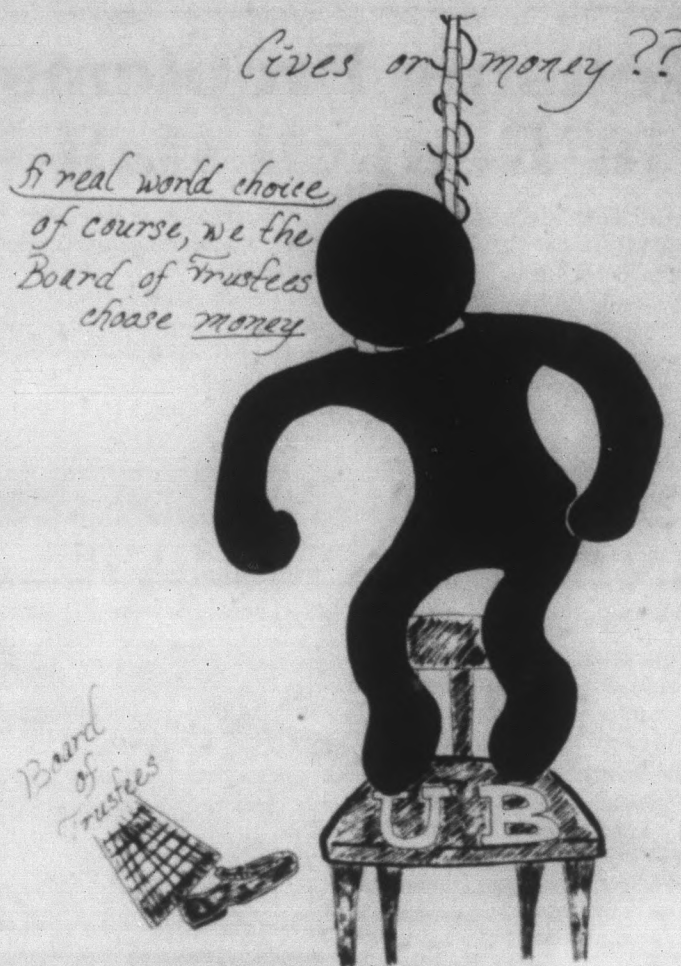 Lives or money??
A real world choice
of course, we the
Board of Trustees
choose money
Board
of
Trustees
UB